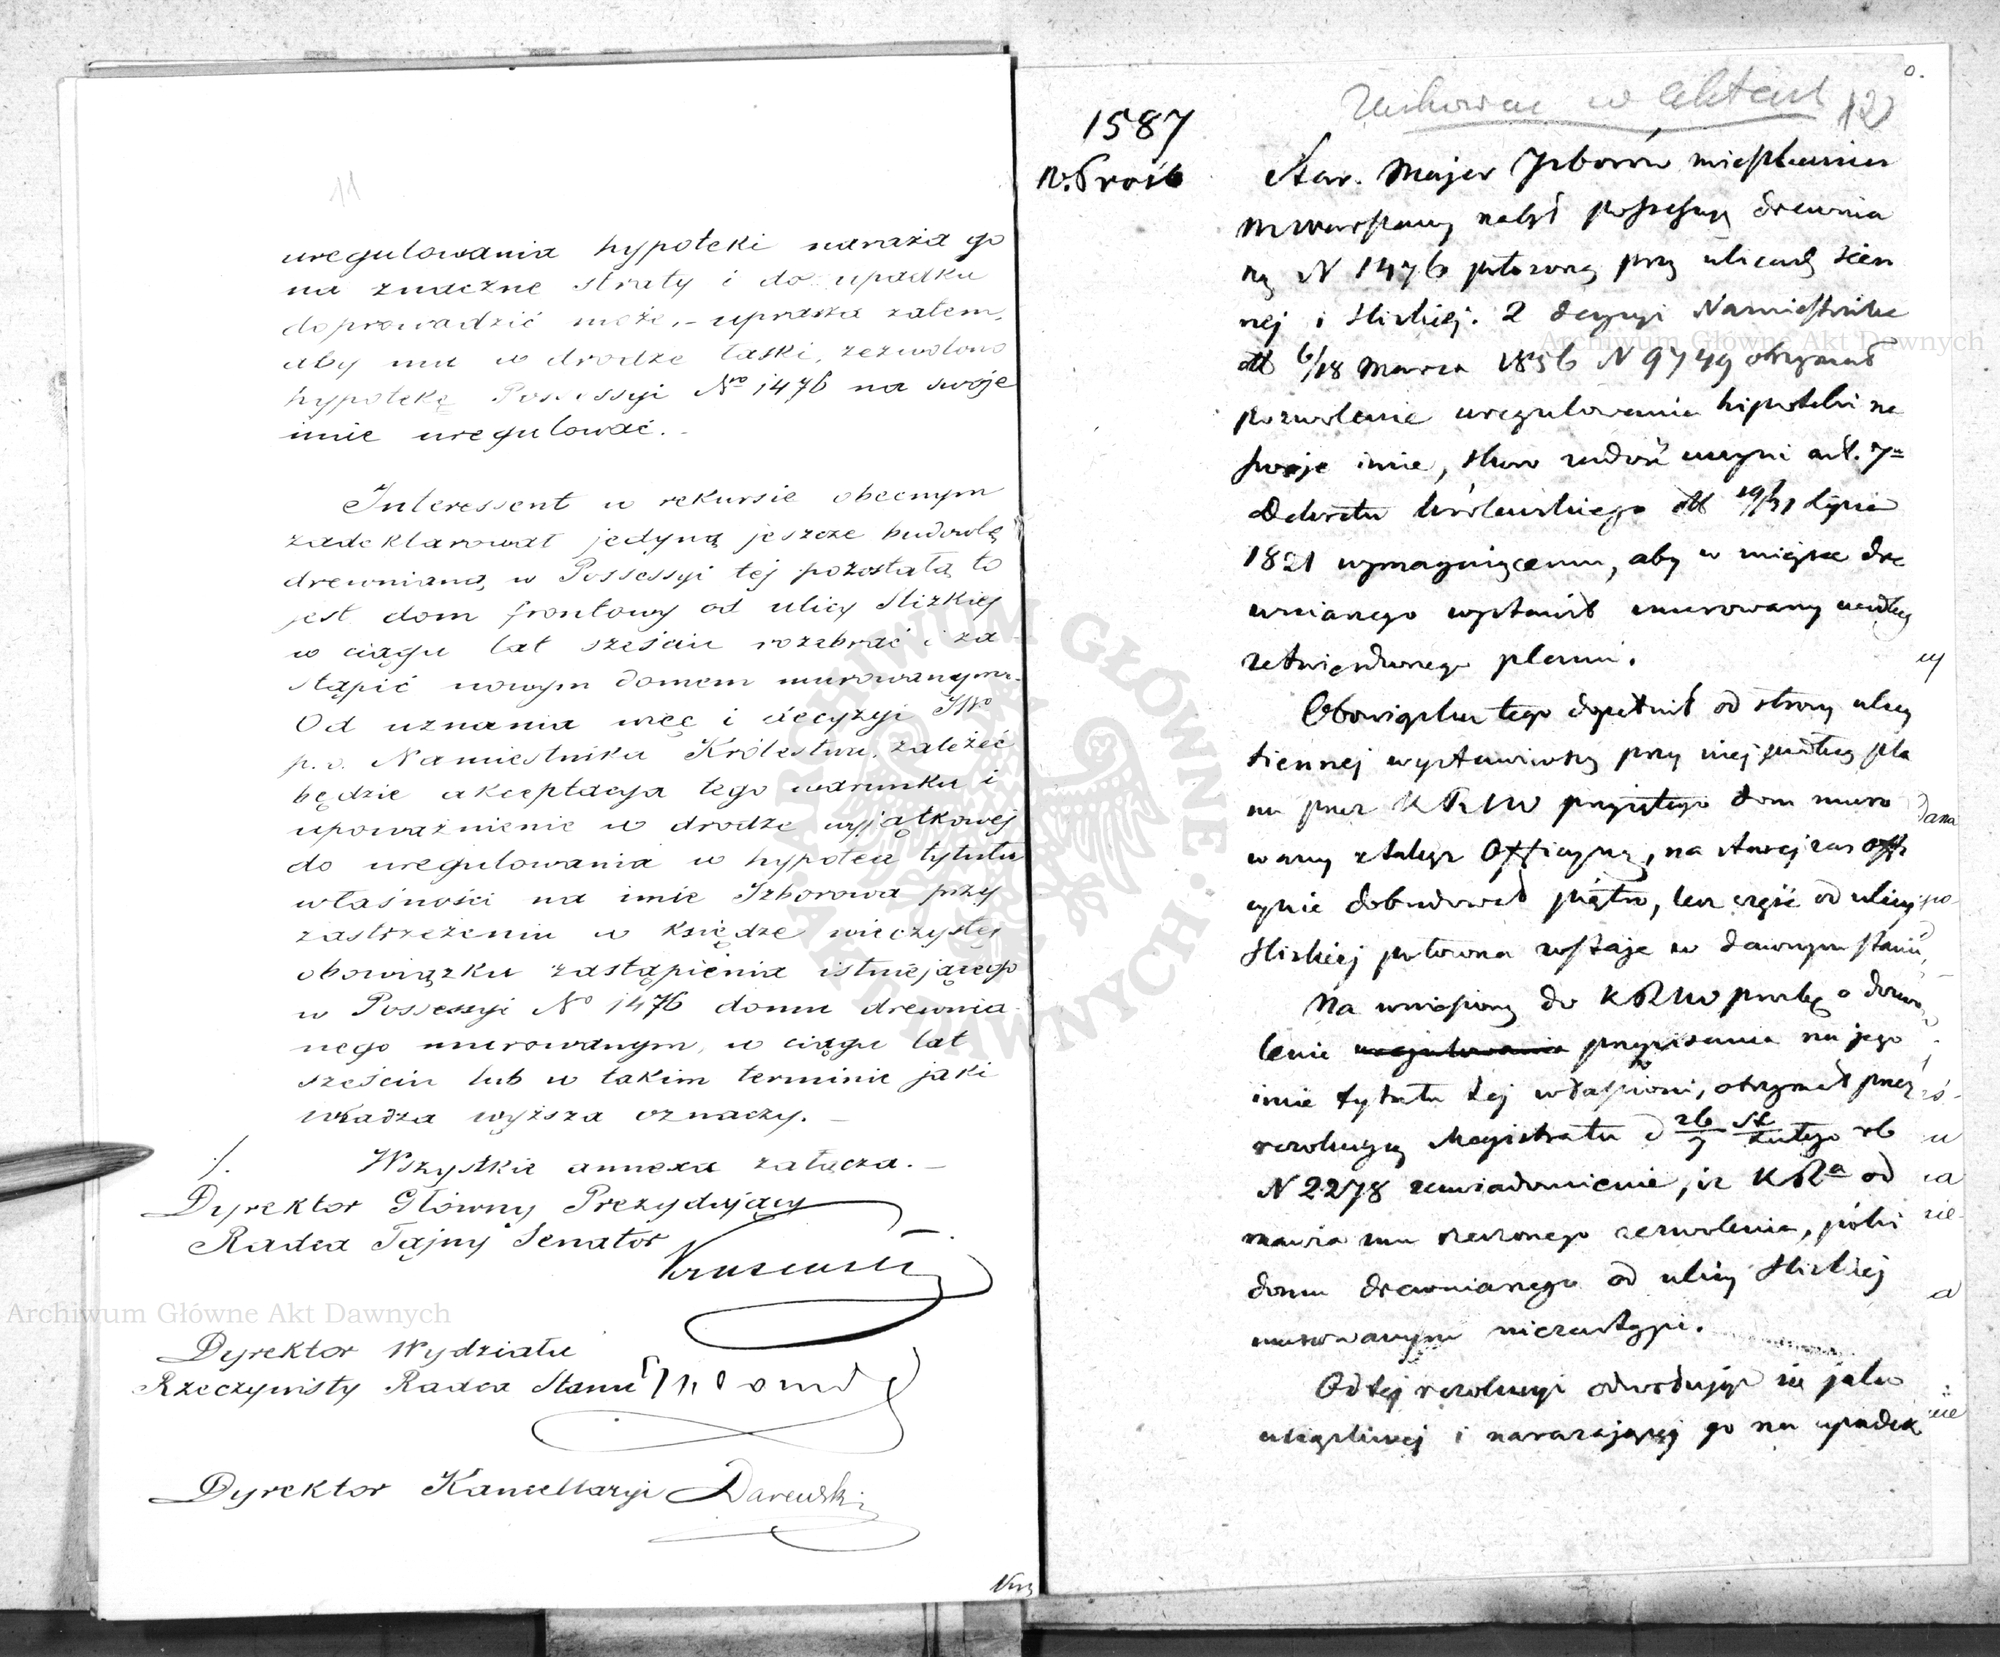 11
uregulowania hypoteki naraża go
na znaczne straty i do upadku
doprowadzić może, – uprasza zatem,
aby mu w drodze łaski, zezwolono
hypotekę Possessyi Nro 1476 na swoje
imie uregulować. –
Interessent w rekursie obecnym
zadeklarował jedyną jeszcze budowlę
drewnianą w Possessyi tej pozostałą to
jest dom frontowy od ulicy Slizkiej
w ciągu lat sześciu rozebrać i za-
stąpić nowym domem murowanym.
Od uznania więc i decyzyi JWo
p.o. Namiestnika Królestwa, zależeć
będzie akceptacya tego warunku i
upoważnienie w drodze wyjątkowej
do uregulowania w hypotece tytułu
własności na imie Izborowa przy
zastrzeżeniu w księdze wieczystej
obowiązku zastąpienia istniejącego
w Possessyi No 1476 domu drewnia-
nego murowanym, w ciągu lat
sześciu lub w takim terminie jaki
władza wyższa oznaczy. –
/. Wszystkie annexa załącza. –
Dyrektor Główny Prezydujący
Radca Tajny Senator
Dyrektor Wydziału
Rzeczywisty Radca Stanu
Dyrektor Kancellaryi Darewski
Archiwum Główne Akt Dawnych
ARCHIWUM GŁÓWNE AKT DAWNYCH
Zachować w aktach 12
1587
N. Prośb
Star. Majer Izborów mieszkaniec
m Warszawy nabył possessyą drewnia
ną N 1476 położoną przy ulicach Sien
nej i Slizkiej. Z decyzyi Namiestnika
dd 6/18 Marca 1856 N 9749 otrzymał
pozwolenie uregulowania hipoteki na
swoje imie, skoro zadość uczyni art. 7m
Dekretu Królewskiego dd 19/31 Lipca
1821 wymagającemu, aby w miejsce dre
wnianego wystawił murowany według
zatwierdzonego planu.
Obowiązku tego dopełnił od strony ulicy
Siennej wystawiwszy przy niej według pla
nu przez KRSW przyjętego dom muro
wany z takąż Officyną, na starej zaś offi
cynie dobudował piątro, lecz część od ulicy
Slizkiej położona zostaje w dawnym stanie,
Na wniesioną do KRSW prośbę o dozwo
lenie uregulowania przepisania na jego
imie tytułu tej własności, otrzymał przez
rezolucyą Magistratu d Lutego rb
N 2278 zawiadomienie, iż KRa od
mawia mu rzeczonego zezwolenia, póki
domu drewnianego od ulicy Slizkiej
murowanym niezastąpi.
Od tej rezolucyi odwołując się jako
uciążliwej i narażającej go na upadek
Archiwum Główne Akt Dawnych